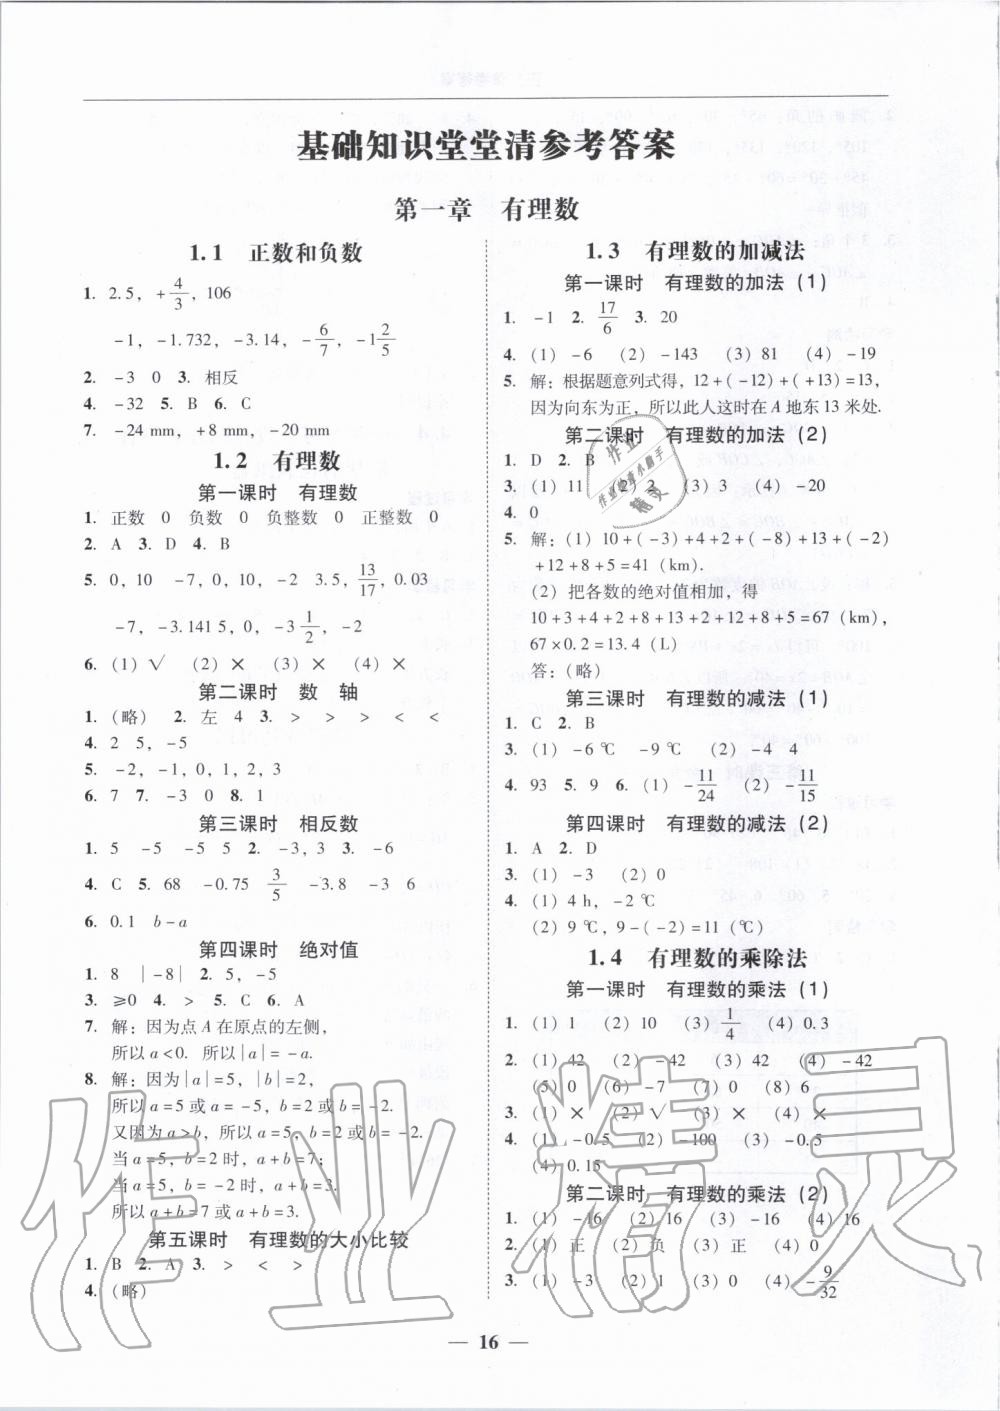 基础知识堂堂清参考答案
第一章　有理数
1.1　正数和负数
1. 2.5，+4/3，106
-1，-1.732，-3.14，-6/7，-1 2/5
2. -3　0　3. 相反
4. -32　5. B　6. C
7. -24 mm，+8 mm，-20 mm
1.2　有理数
第一课时　有理数
1. 正数　0　负数　0　负整数　0　正整数　0
2. A　3. D　4. B
5. 0，10　-7，0，10，-2　3.5，13/17，0.03
-7，-3.141 5，0，-3 1/2，-2
6. (1)√　(2)×　(3)×　(4)×
第二课时　数　轴
1. (略)　2. 左　4　3. >　>　>　<　<
4. 2　5，-5
5. -2，-1，0，1，2，3
6. 7　7. -3　0　8. 1
第三课时　相反数
1. 5　-5　-5　5　2. -3，3　3. -6
4. C　5. 68　-0.75　3/5　-3.8　-3　6
6. 0.1　b-a
第四课时　绝对值
1. 8　|-8|　2. 5，-5
3. ≥0　4. >　5. C　6. A
7. 解：因为点A在原点的左侧，
所以a<0. 所以|a|=-a.
8. 解：因为|a|=5，|b|=2，
所以a=5或a=-5，b=2或b=-2.
又因为a>b，所以a=5，b=2或b=-2.
当a=5，b=2时，a+b=7；
当a=5，b=-2时，a+b=3.
所以a+b=7或a+b=3.
第五课时　有理数的大小比较
1. B　2. A　3. >　<　>
4. (略)
1.3　有理数的加减法
第一课时　有理数的加法(1)
1. -1　2. 17/6　3. 20
4. (1)-6　(2)-143　(3)81　(4)-19
5. 解：根据题意列式得，12+(-12)+(+13)=13，
因为向东为正，所以此人这时在A地东13米处.
第二课时　有理数的加法(2)
1. D　2. B
3. (1)11　(2)2　(3)3　(4)-20
4. 0
5. 解：(1)10+(-3)+4+2+(-8)+13+(-2)
+12+8+5=41(km).
(2)把各数的绝对值相加，得
10+3+4+2+8+13+2+12+8+5=67(km)，
67×0.2=13.4(L)
答：(略)
第三课时　有理数的减法(1)
1. C　2. B
3. (1)-6℃　-9℃　(2)-4　4
4. 93　5. 9　6. (1)-11/24　(2)-11/15
第四课时　有理数的减法(2)
1. A　2. D
3. (1)-3　(2)0
4. (1)4 h，-2℃
(2)9℃，9-(-2)=11(℃)
1.4　有理数的乘除法
第一课时　有理数的乘法(1)
1. (1)1　(2)10　(3)1/4　(4)0.3
2. (1)42　(2)-42　(3)42　(4)-42
(5)0　(6)-7　(7)0　(8)6
3. (1)×　(2)√　(3)×　(4)×
4. (1)-0.5　(2)-100　(3)-0.5
(4)0.15
第二课时　有理数的乘法(2)
1. (1)-16　(2)16　(3)-16　(4)16
2. (1)正　(2)负　(3)正　(4)0
3. (1)-3　(2)1　(3)0　(4)-9/32
— 16 —
作业
作业检查小助手
精灵
作业精灵